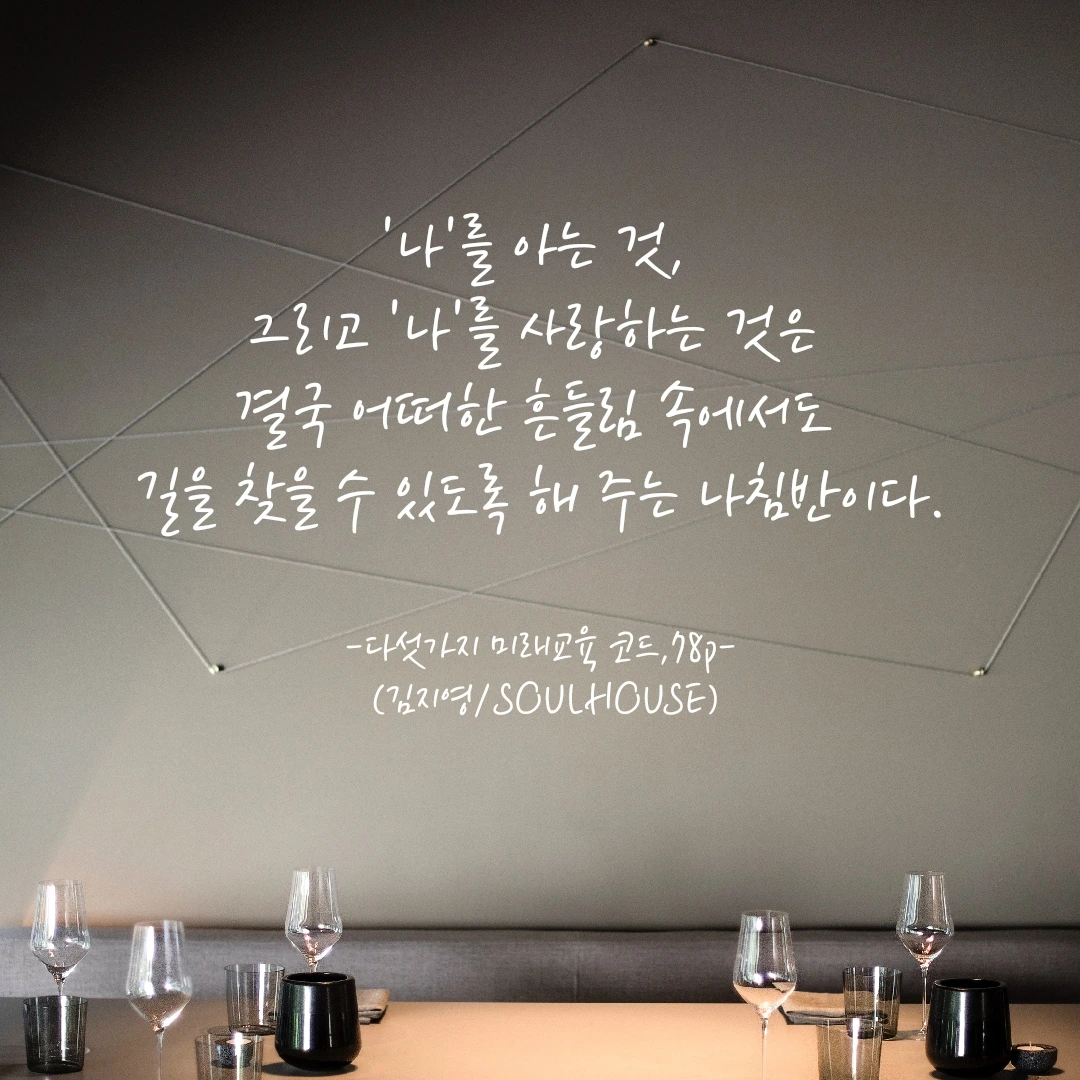 '나'를 아는 것,
그리고 '나'를 사랑하는 것은
결국 어떠한 흔들림 속에서도
길을 찾을 수 있도록 해 주는 나침반이다.
-다섯가지 미래교육 코드,78p-
(김지영/SOULHOUSE)